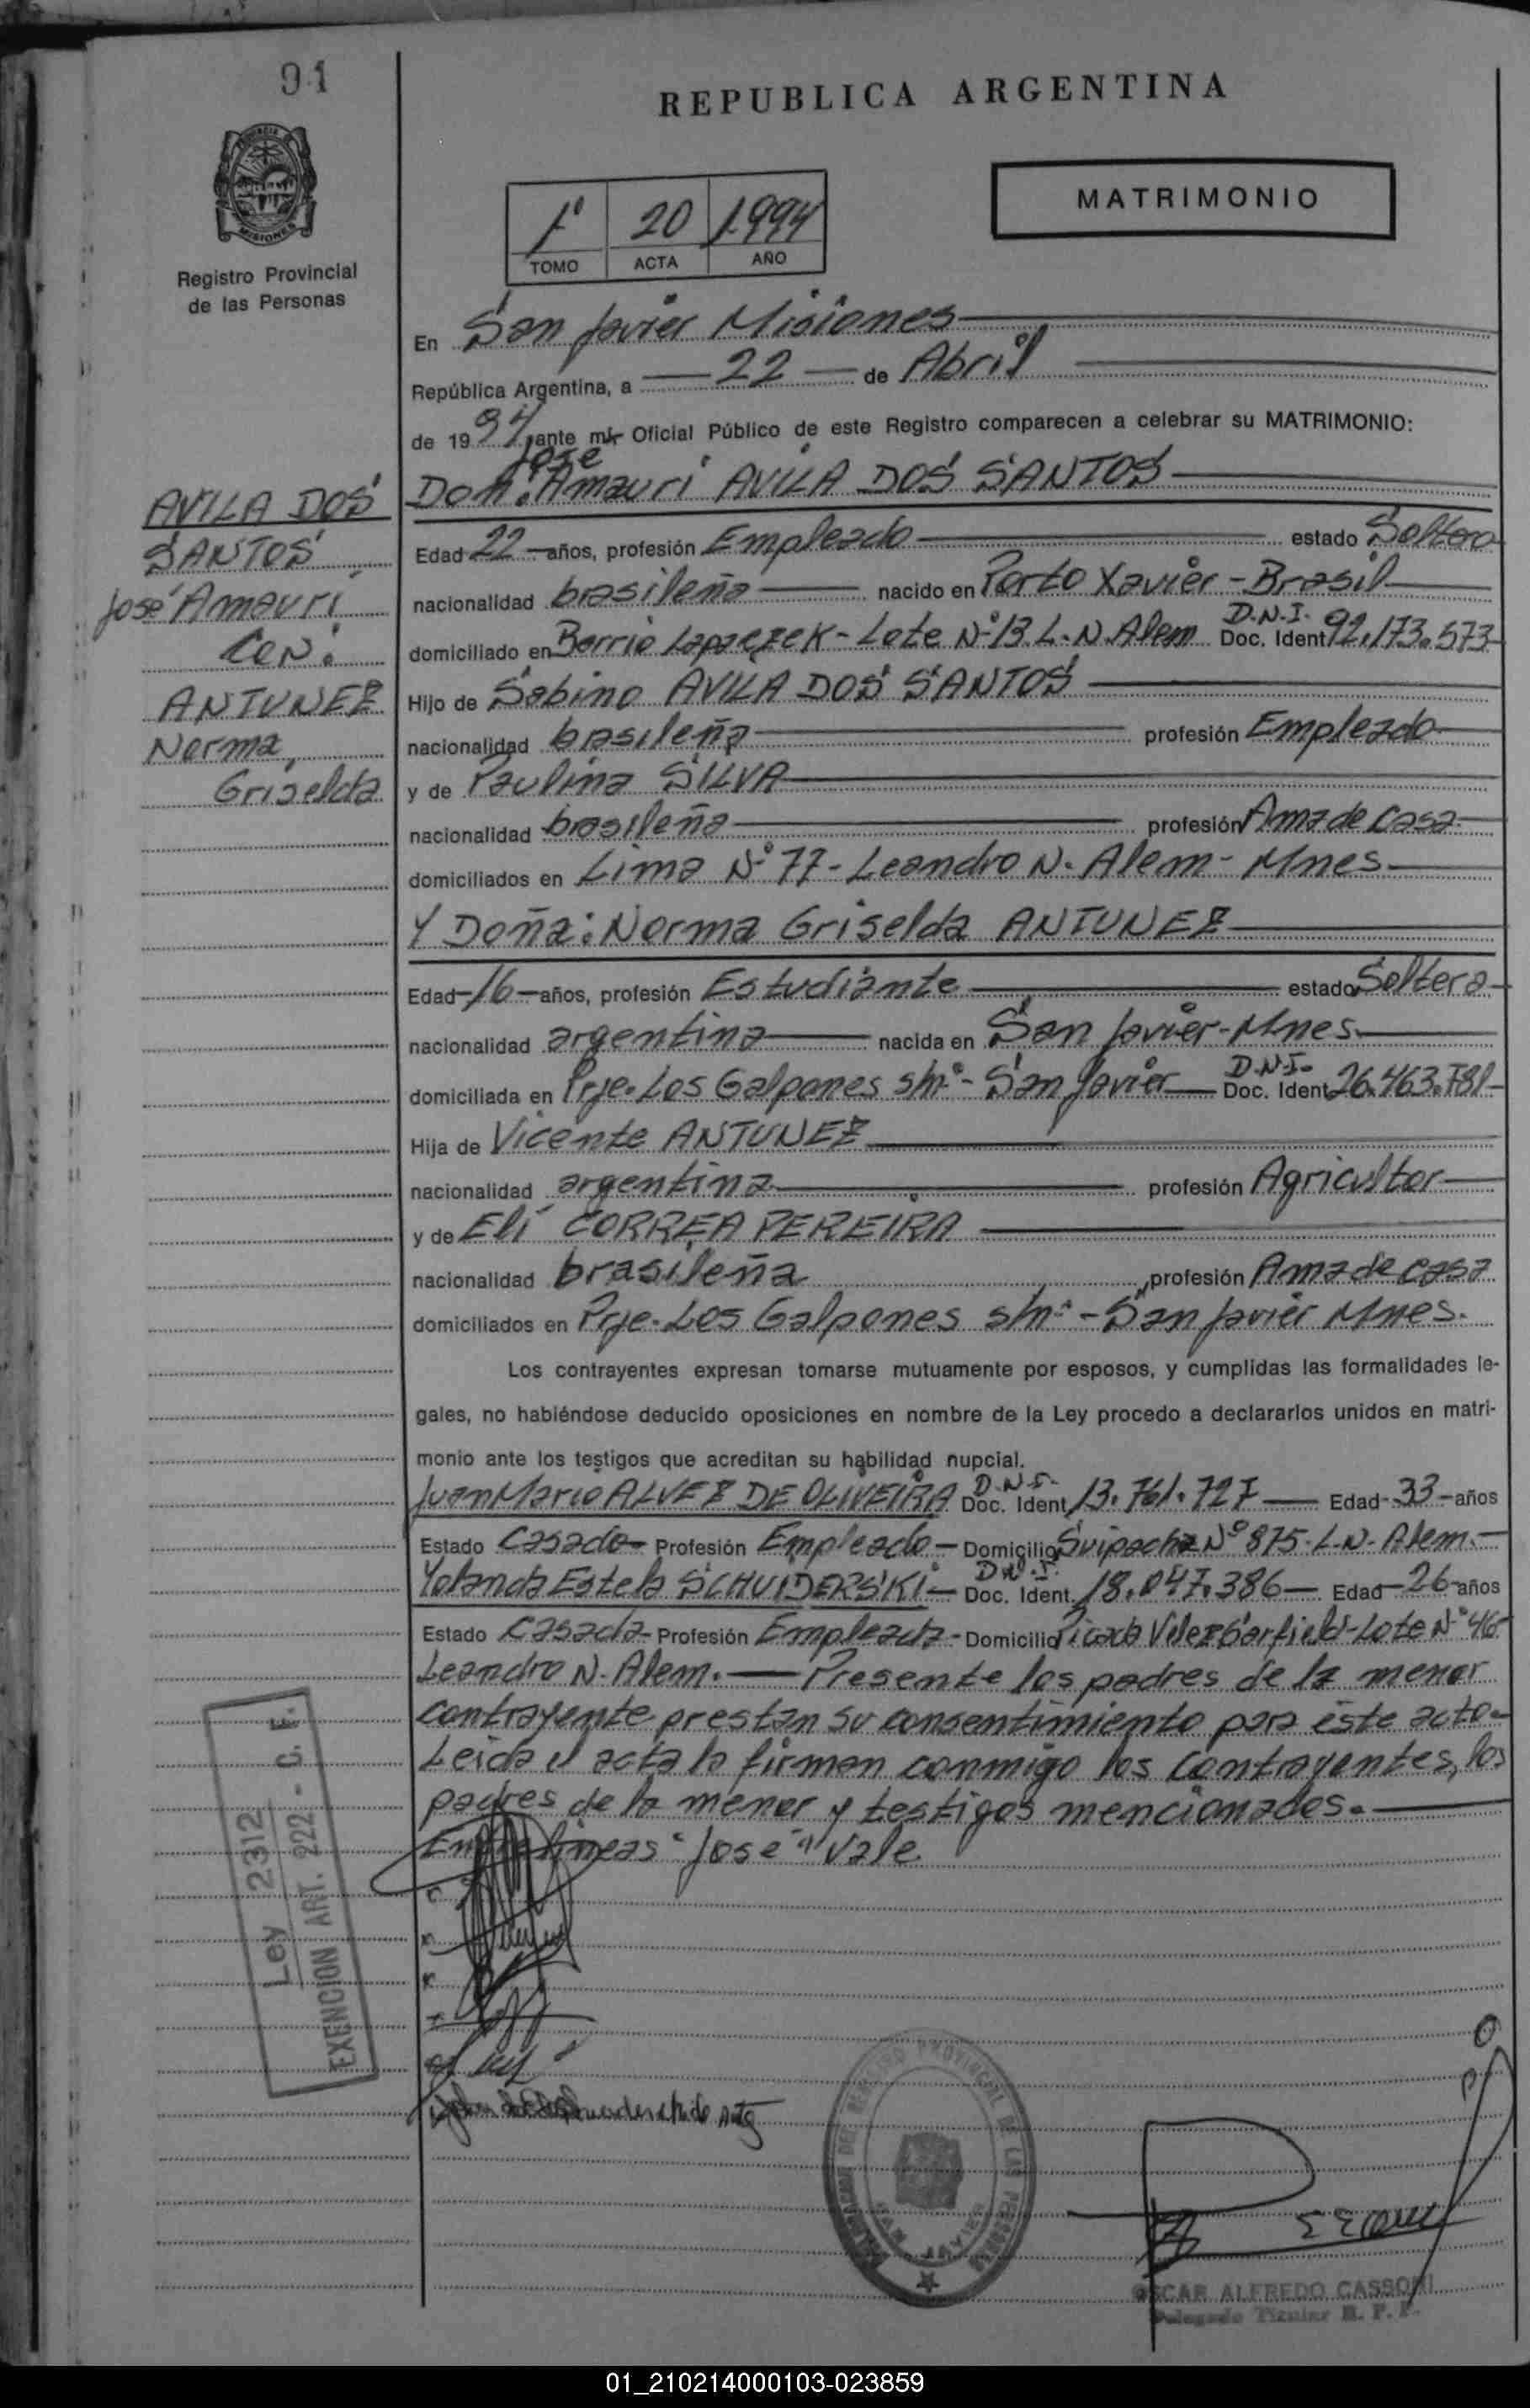 91
REPUBLICA ARGENTINA
MATRIMONIO
1º 20 1.994
TOMO ACTA AÑO
Registro Provincial
de las Personas
AVILA DOS
SANTOS
José Amauri
CON:
ANTUNEZ
Norma,
Griselda
En San Javier Misiones
República Argentina, a 22 de Abril
de 1994, ante mí Oficial Público de este Registro comparecen a celebrar su MATRIMONIO:
José
Don: Amauri AVILA DOS SANTOS
Edad 22 años, profesión Empleado estado Soltero
nacionalidad brasileña nacido en Porto Xavier - Brasil
D.N.I.
domiciliado en Barrio Lapaczek - Lote Nº 13 L.N. Alem Doc. Ident 92.173.573
Hijo de Sabino AVILA DOS SANTOS
nacionalidad brasileña profesión Empleado
y de Paulina SILVA
nacionalidad brasileña profesión Ama de casa
domiciliados en Lima Nº 77 - Leandro N. Alem - Mnes
Y Doña: Norma Griselda ANTUNEZ
Edad 16 años, profesión Estudiante estado Soltera
nacionalidad argentina nacida en San Javier - Mnes
D.N.I.
domiciliada en Prje. Los Galpones s/nº - San Javier Doc. Ident 26.463.781
Hija de Vicente ANTUNEZ
nacionalidad argentina profesión Agricultor
y de Elí CORREA PEREIRA
nacionalidad brasileña profesión Ama de casa
domiciliados en Prje. Los Galpones s/nº - San Javier Mnes.
Los contrayentes expresan tomarse mutuamente por esposos, y cumplidas las formalidades le-
gales, no habiéndose deducido oposiciones en nombre de la Ley procedo a declararlos unidos en matri-
monio ante los testigos que acreditan su habilidad nupcial.
D.N.I.
Juan Mario ALVEZ DE OLIVEIRA Doc. Ident 13.761.727 Edad 33 años
Estado Casado Profesión Empleado Domicilio Suipacha Nº 875. L.N. Alem.
D.N.I.
Yolanda Estela SCHUIDERSKI Doc. Ident. 18.047.386 Edad 26 años
Estado Casada Profesión Empleada - Domicilio Picada Velez Sarfield - Lote Nº 46
Leandro N. Alem. Presente los padres de la menor
contrayente prestan su consentimiento para éste acto.
Leida el acta la firman conmigo los contrayentes, los
padres de la menor y testigos mencionados.
Entre lineas "José" Vale
Ley 2312 - C. F.
EXENCION ART. 222
OSCAR ALFREDO CASSONI
Delegado Titular R. P. P.
01_210214000103-023859